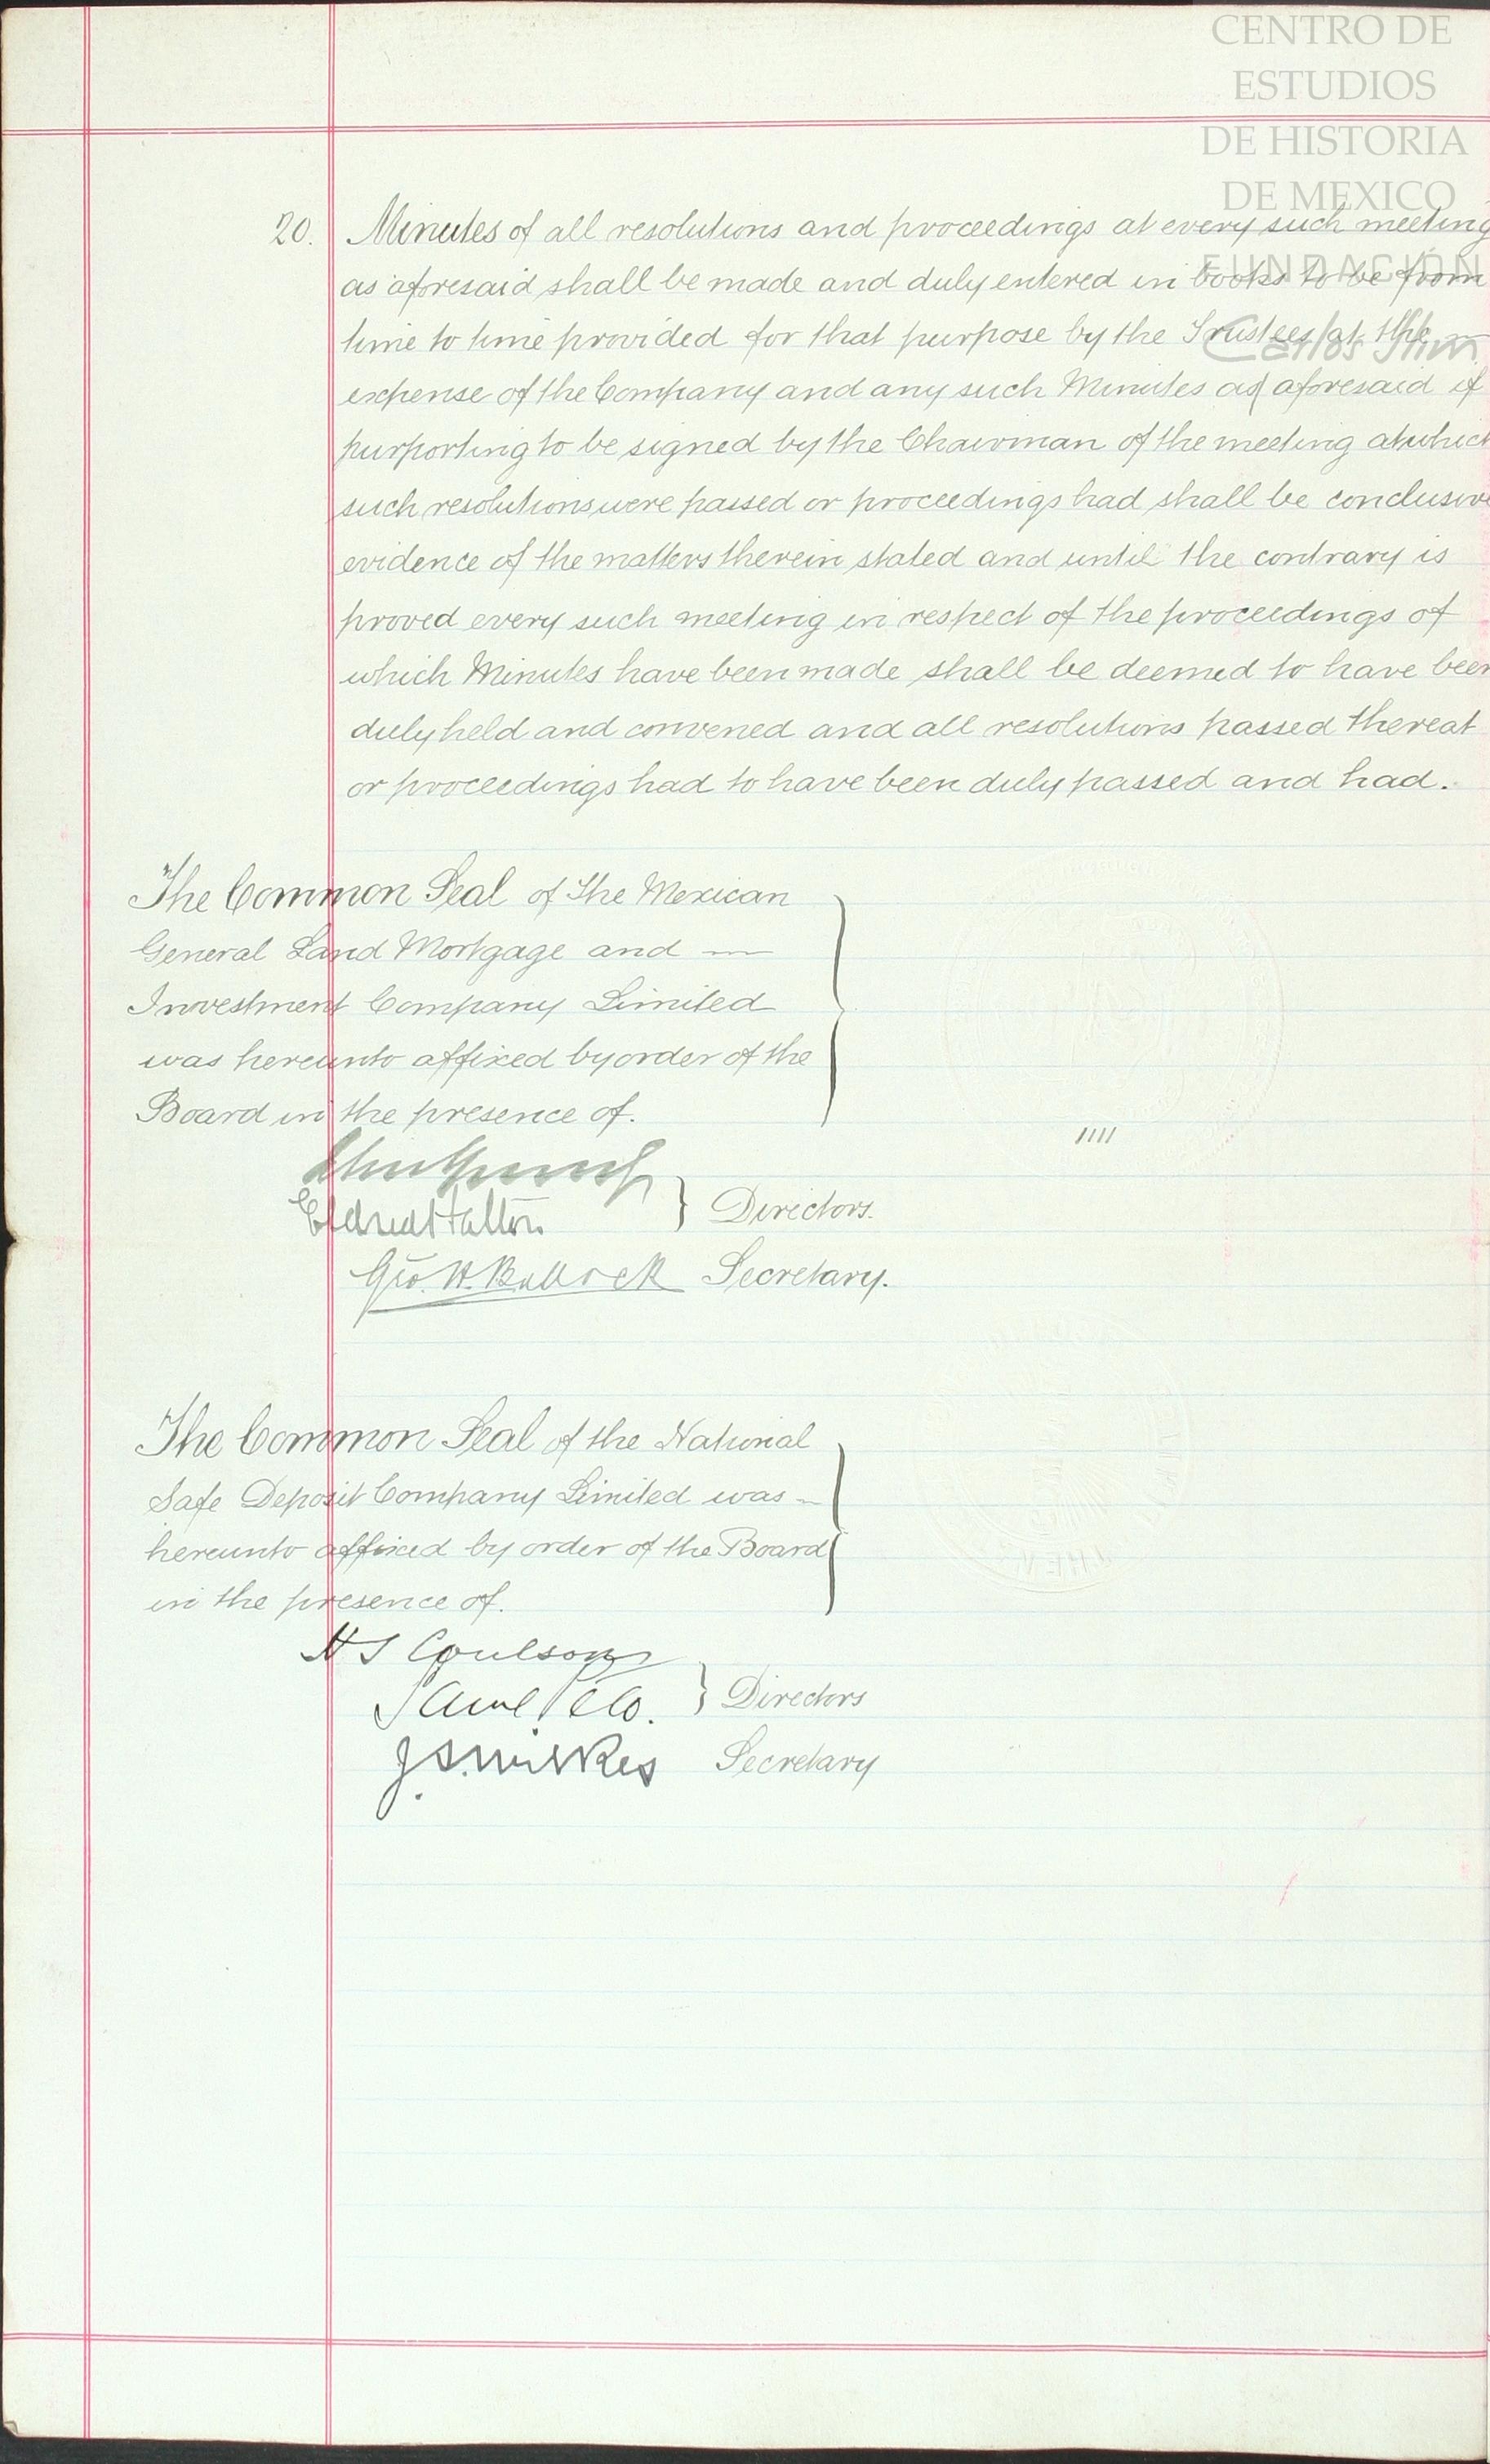 CENTRO DE
ESTUDIOS
DE HISTORIA
DE MEXICO
FUNDACIÓN
Carlos Slim
20. Minutes of all resolutions and proceedings at every such meeting
as aforesaid shall be made and duly entered in books to be from
time to time provided for that purpose by the Trustees at the
expense of the Company and any such Minutes as aforesaid if
purporting to be signed by the Chairman of the meeting at which
such resolutions were passed or proceedings had shall be conclusive
evidence of the matters therein stated and until the contrary is
proved every such meeting in respect of the proceedings of
which Minutes have been made shall be deemed to have been
duly held and convened and all resolutions passed thereat
or proceedings had to have been duly passed and had.
The Common Seal of the Mexican
General Land Mortgage and
Investment Company Limited
was hereunto affixed by order of the
Board in the presence of.
Directors.
Geo. H. Bullock Secretary.
The Common Seal of the National
Safe Deposit Company Limited was
hereunto affixed by order of the Board
in the presence of.
H S Coulson
Directors
J.S. Wilkes Secretary